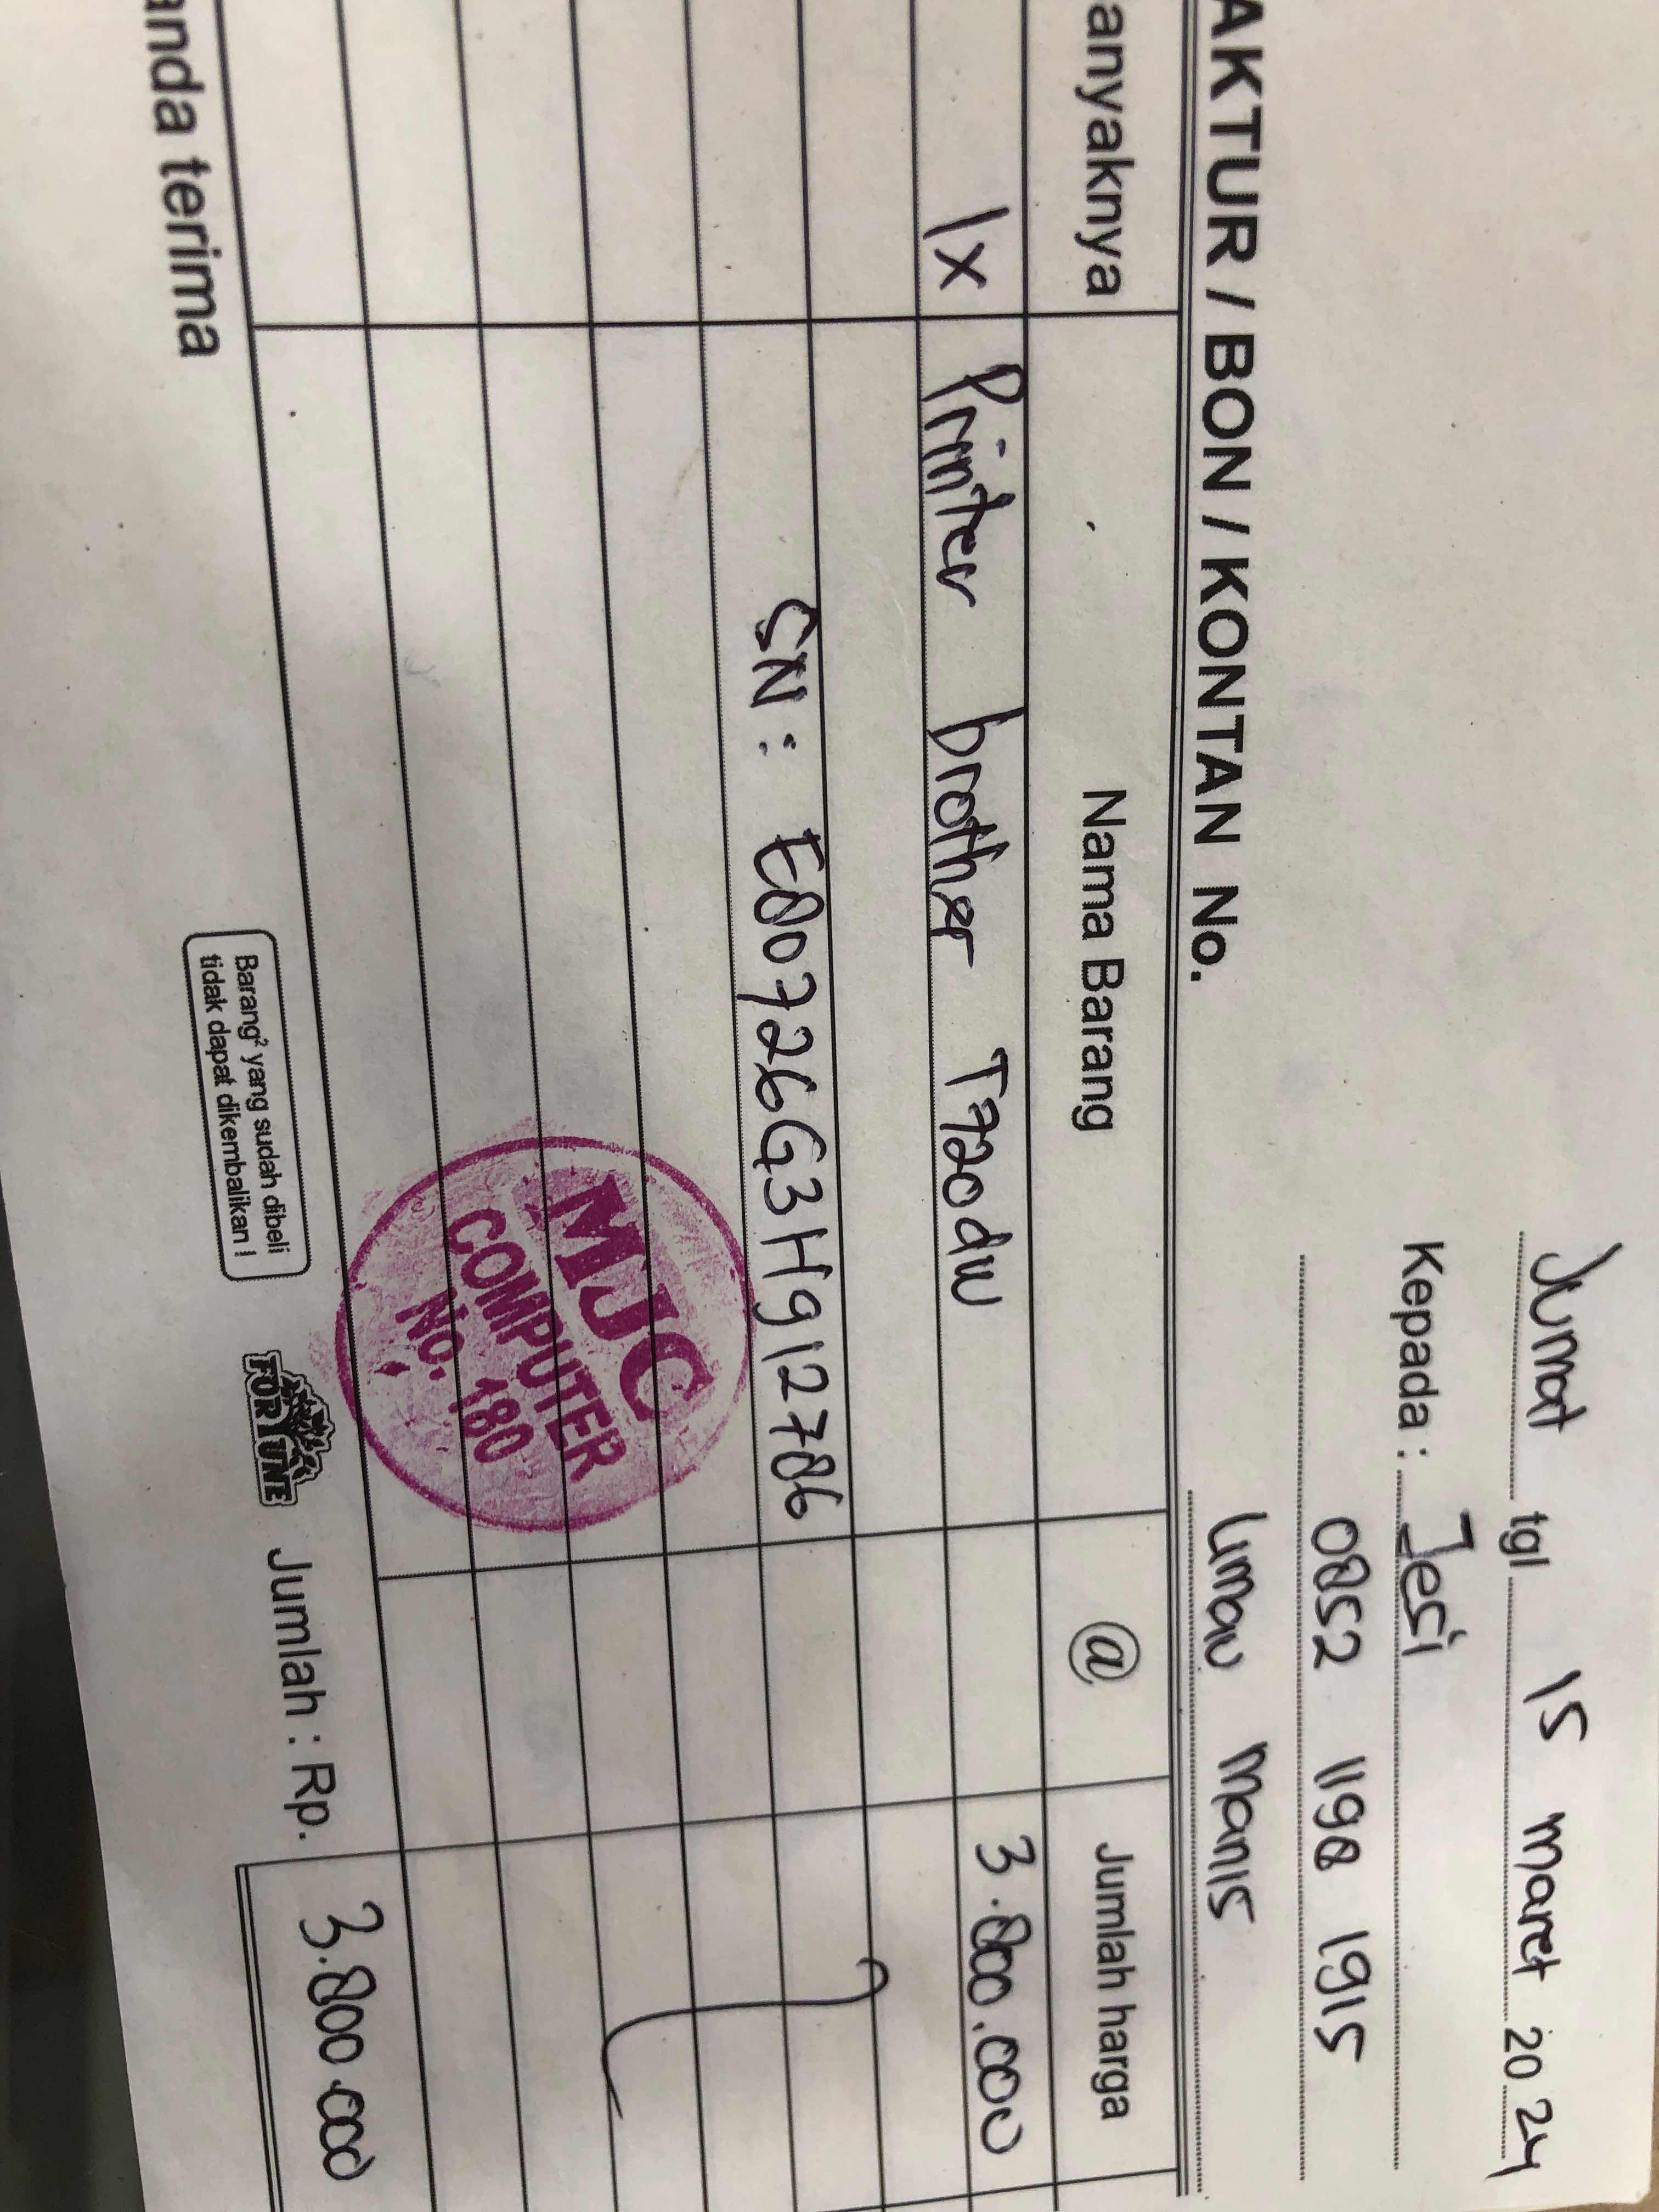 Jumat tgl 15 maret 2024
Kepada : Jesi
0852 1198 1915
Limau manis
AKTUR / BON / KONTAN No.
anyaknya Nama Barang @ Jumlah harga
1x Printer brother T720dw 3.800.000
SN : E80726G3H912786
MJC
COMPUTER
No. 180
anda terima
Barang² yang sudah dibeli
tidak dapat dikembalikan !
FORTUNE
Jumlah : Rp. 3.800.000